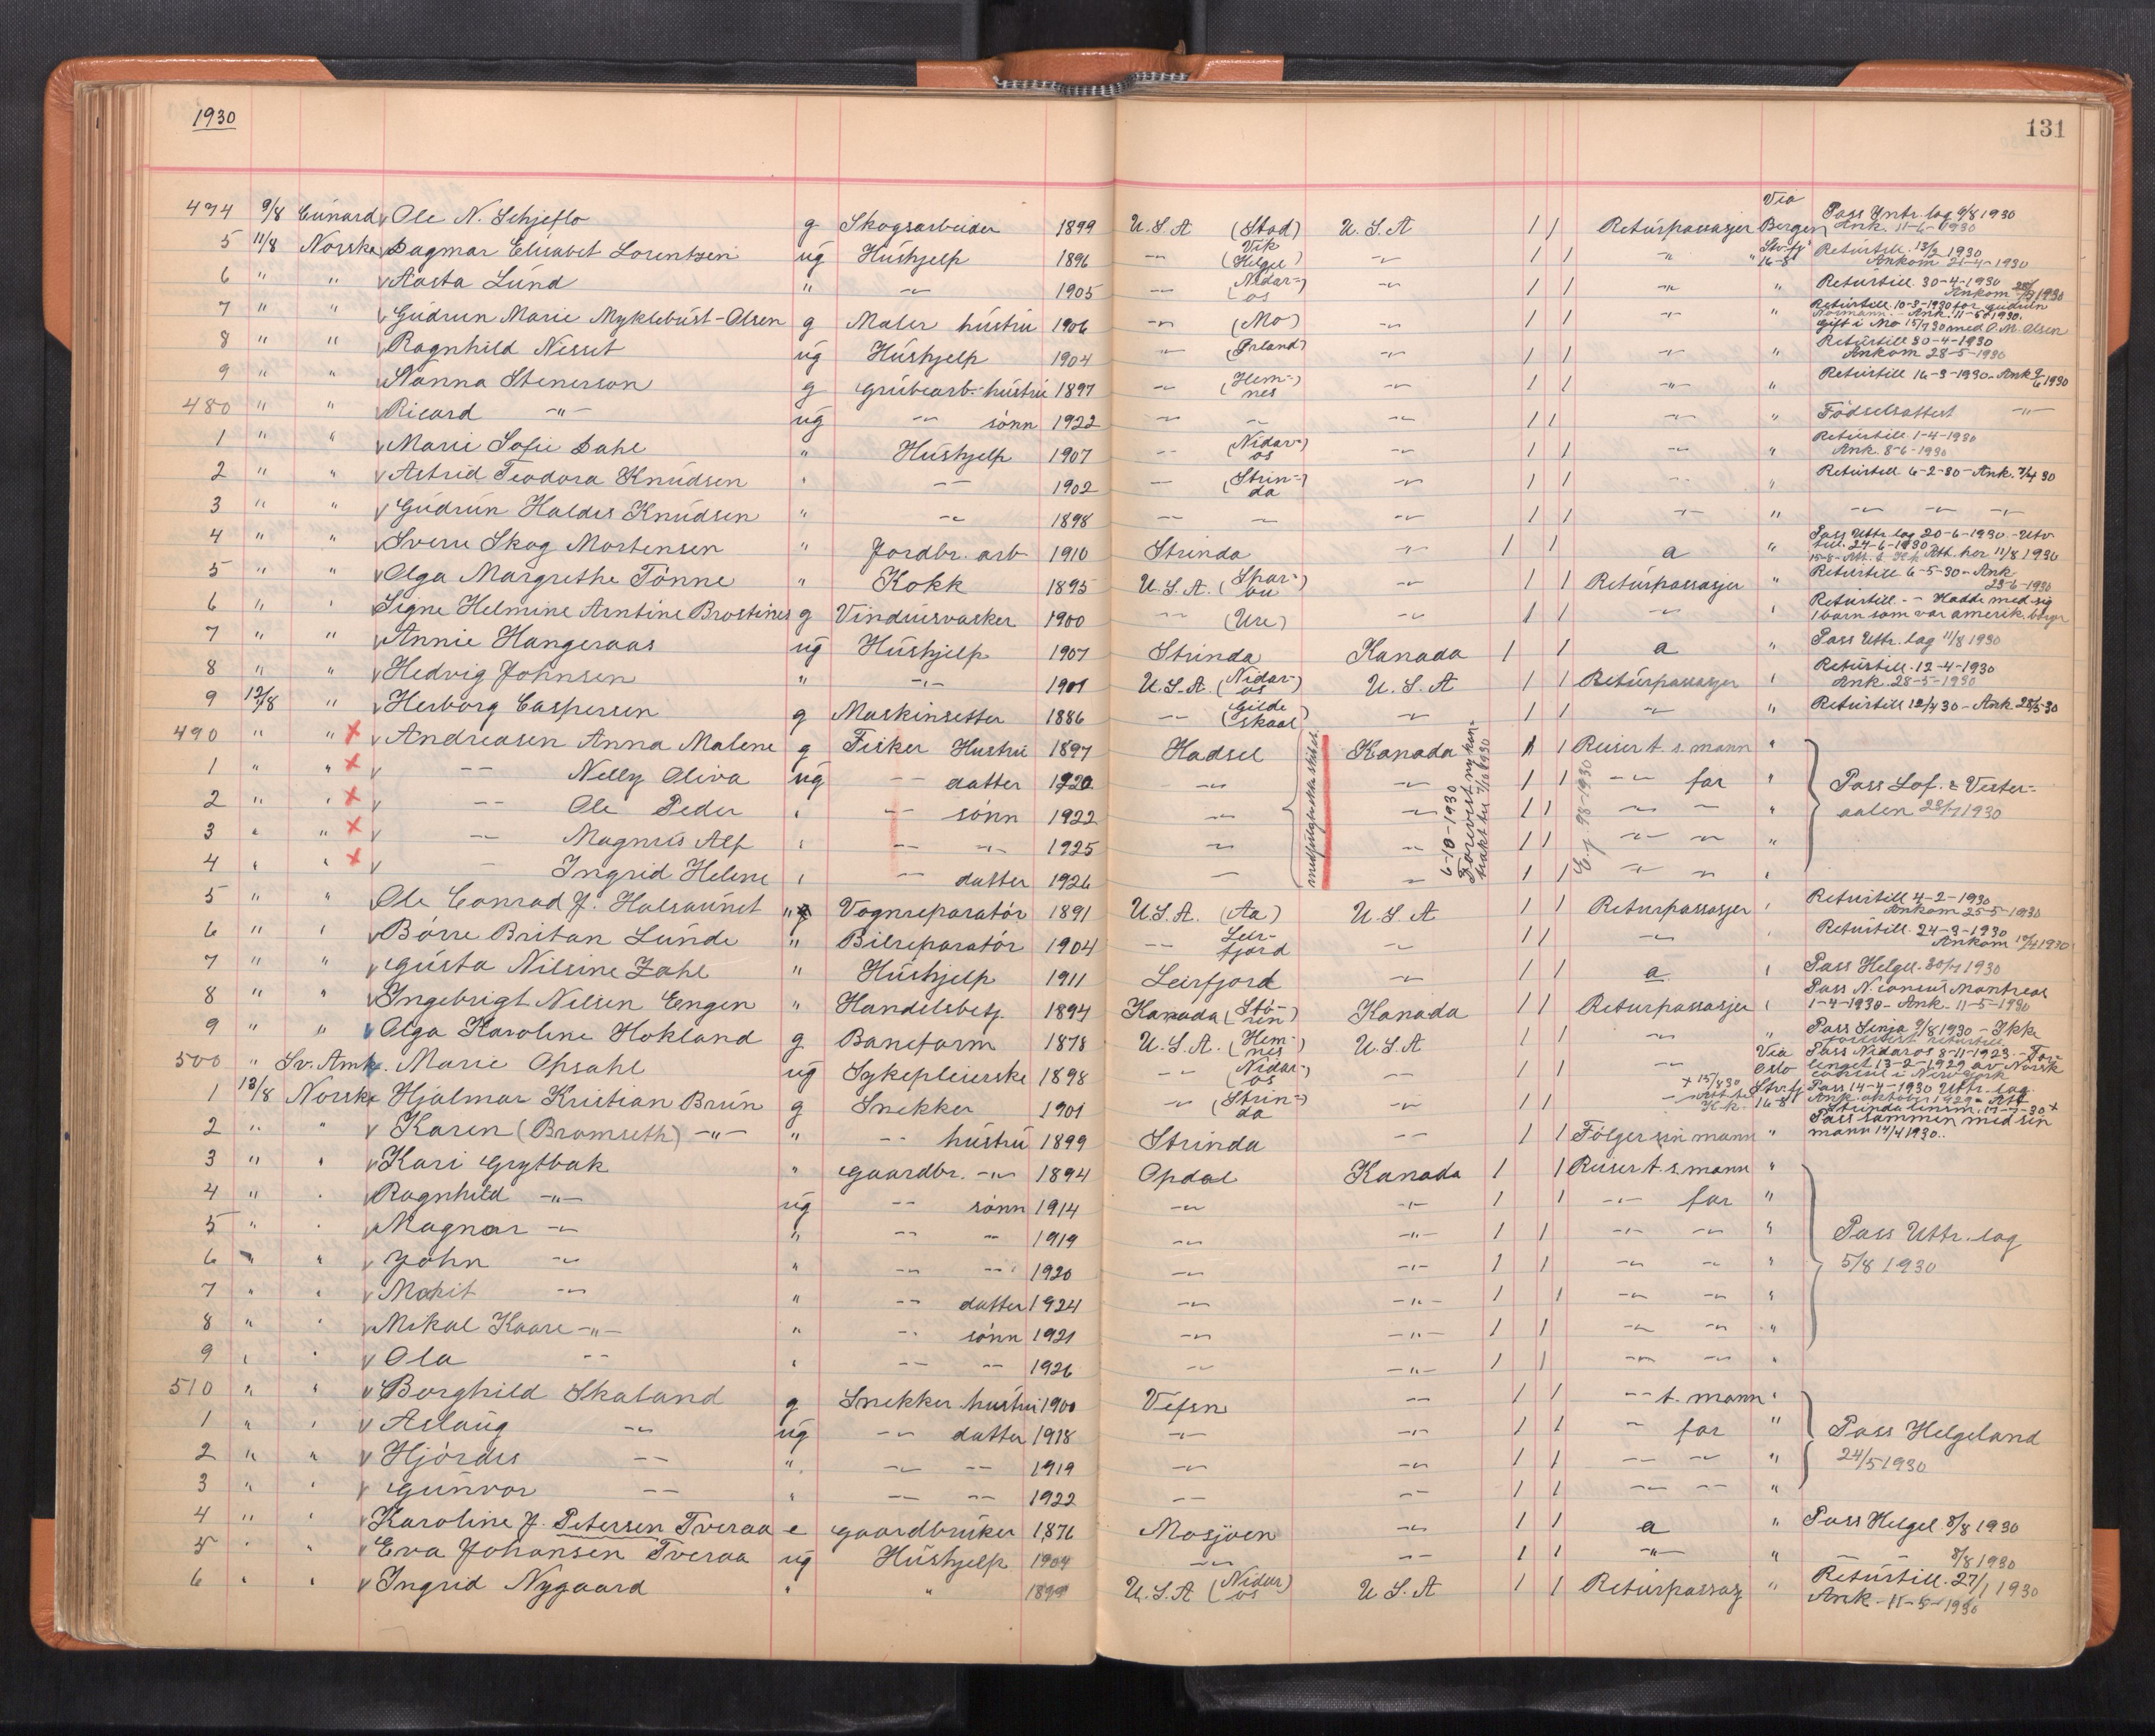 1930
131
474 9/8 Cunard Ole N. Schjeflo g Skogsarbeider 1899 U.S.A (Stod) U.S.A 1 1 Returpassasjer Via Bergen Pass Inntr. lag 9/8 1930 Ank. 11-6-1930
5 11/8 Norske Dagmar Elisabet Lorentzen ug Hushjelp 1896 -"- (Vik Helgel) -"- 1 1 " " 16-8 Returtill. 13/2 1930 Ankom 21-4-1930
6 " " Aasta Lund " -"- 1905 -"- (Nidaros) -"- 1 1 -"- " Returtill. 30-4-1930 Ankom 1930
7 " " Gudrun Marie Myklebust-Olsen g Maler hustru 1906 -"- (Mo) -"- 1 1 -"- " Returtill. 10-3-1930 for Gudrun Normann - Ank. 11-5-1930. Gift i Mo 15/7 30 med O.M. Olsen
8 " " Ragnhild Nesset ug Hushjelp 1904 -"- (Ørland) -"- 1 1 -"- " Returtill 30-4-1930 Ankom 28-5-1930
9 " " Nanna Stenerson g Grubearb. hustru 1897 -"- (Hemnes) -"- 1 1 -"- " Returtill 16-3-1930 - Ank 9/6 1930
480 " " Ricard -"- ug -"- sønn 1922 -"- -"- -"- 1 1 -"- " Fødselsattest -"-
1 " " Marie Sofie Dahl " Hushjelp 1907 -"- (Nidaros) -"- 1 1 -"- " Returtill 1-4-1930 Ank. 8-6-1930
2 " " Astrid Teodora Knudsen " -"- 1902 -"- (Strinda) -"- 1 1 -"- " Returtill 6-2-30 - Ank. 7/4 30
3 " " Gudrun Haldis Knudsen " -"- 1898 -"- -"- -"- 1 1 -"- " -"- -"- -"-
4 " " Sverre Skog Mortensen " Jordbr. arb 1910 Strinda -"- 1 1 a " Pass Uttr. lag 20-6-1930. - Utv. till. 24-6-1930 Att. her 11/8 1930
5 " " Olga Margrethe Tønne " Kokk 1895 U.S.A. (Sparbu) -"- 1 1 Returpassasjer " Returtill 6-5-30 - Ank. 23-6-1930
6 " " Signe Helmine Arntine Brostines g Vindusvasker 1900 -"- (Ure) -"- 1 1 -"- " Returtill. - - Hadde med sig 1 barn som var amerik. borger
7 " " Annie Hangeraas ug Hushjelp 1907 Strinda Kanada 1 1 a " Pass Uttr. lag 11/8 1930
8 " " Hedvig Johnsen " -"- 1901 U.S.A. (Nidaros) U.S.A 1 1 Returpassasjer " Returtill. 12-4-1930 Ank. 28-5-1930
9 12/8 " Herborg Caspersen g Maskinsetter 1886 -"- (Gildeskaal) -"- 1 1 -"- " Returtill 12/4 30 - Ank. 28/5-30
490 " " x Andreasen Anna Malene g Fisker Hustru 1897 Hadsel Kanada 1 1 Reiser t. s. mann "
1 " " x -"- Nelly Oliva ug -"- datter 1920 -"- -"- 1 1 -"- far " Pass Lof. & Vesteraalen 28/7 1930
2 " " x -"- Ole Peder " -"- sønn 1922 -"- -"- 1 1 -"- -"- "
3 " " x -"- Magnus Alf " -"- -"- 1925 -"- -"- 1 1 -"- -"- "
4 " " x -"- Ingrid Helene " -"- datter 1926 -"- -"- 1 1 -"- -"- "
6-10-1930 Forevist ny kontrakt
5 " " Ole Conrad J. Halsaunet " Vognreparatør 1891 U.S.A. (Aa) U.S.A 1 1 Returpassasjer " Returtill 4-2-1930 Ankom 25-5-1930
6 " " Børre Britan Lunde " Bilreparatør 1904 -"- Leirfjord -"- 1 1 -"- " Returtill. 24-3-1930 Ankom 1930
7 " " Gusta Nilsine Zahl " Hushjelp 1911 Leirfjord -"- 1 1 a " Pass Helgel. 30/7 1930
8 " " Ingebrigt Nilsen Engen " Handelsbetj. 1894 Kanada (Støren) Kanada 1 1 Returpassasjer " Pass N. consul Montreal 1-4-1930 - Ank. 11-5-1930
9 " " Olga Karoline Hokland g Banefarm 1878 U.S.A. (Hemnes) U.S.A 1 1 -"- " Pass Senja 9/8 1930 - Ikke forevist returtill.
500 " Sv. Amk. Marie Opsahl ug Sykepleierske 1898 -"- (Nidaros) -"- 1 1 -"- Via Oslo Pass Nidaros 8-11-1923. - Forlenget 13-2-1929 av Norsk consul i New York
1 13/8 Norske Hjalmar Kristian Brun g Snekker 1901 -"- (Strinda) -"- 1 1 -"- 16-8 Pass 14-4-1930 Uttr. lag. Ank. oktober 1929 - Att Strinda lensm. 17-7-30 x
2 " " Karen (Bromseth) -"- " -"- hustru 1899 Strinda -"- 1 1 Følger sin mann " Pass sammen med sin mann 14/4 1930.
3 " " Kari Grytbak " Gaardbr. -"- 1894 Opdal Kanada 1 1 Reiser t. s mann "
4 " " Ragnhild -"- ug -"- sønn 1914 -"- -"- 1 1 -"- far "
5 " " Magnar -"- " -"- -"- 1919 -"- -"- 1 1 -"- -"- " Pass Uttr. lag
6 " " John -"- " -"- -"- 1920 -"- -"- 1 1 -"- -"- " 5/8 1930
7 " " Marit -"- " -"- datter 1924 -"- -"- 1 1 -"- -"- "
8 " " Mikal Kaare -"- " -"- sønn 1921 -"- -"- 1 1 -"- -"- "
9 " " Ola -"- " -"- -"- 1926 -"- -"- 1 1 -"- -"- "
510 " " Borghild Skaland g Snekker hustru 1900 Vefsn -"- 1 1 -"- t. mann "
1 " " Aslaug -"- ug -"- datter 1918 -"- -"- 1 1 -"- far " Pass Helgeland
2 " " Hjørdis -"- " -"- -"- 1919 -"- -"- 1 1 -"- -"- " 24/5 1930
3 " " Gunvor -"- " -"- -"- 1922 -"- -"- 1 1 -"- -"- "
4 " " Karoline J. Petersen Tveraa e Gaardbruker 1876 Mosjøen -"- 1 1 a " Pass Helgel. 8/8 1930
5 " " Eva Johansen Tveraa ug Hushjelp 1904 -"- -"- 1 1 -"- " -"- 8/8 1930
6 " " Ingrid Nygaard " " 1899 U.S.A (Nidaros) U.S.A 1 1 Returpassasj " Returtill. 27/1 1930 Ank. 11-5-1930